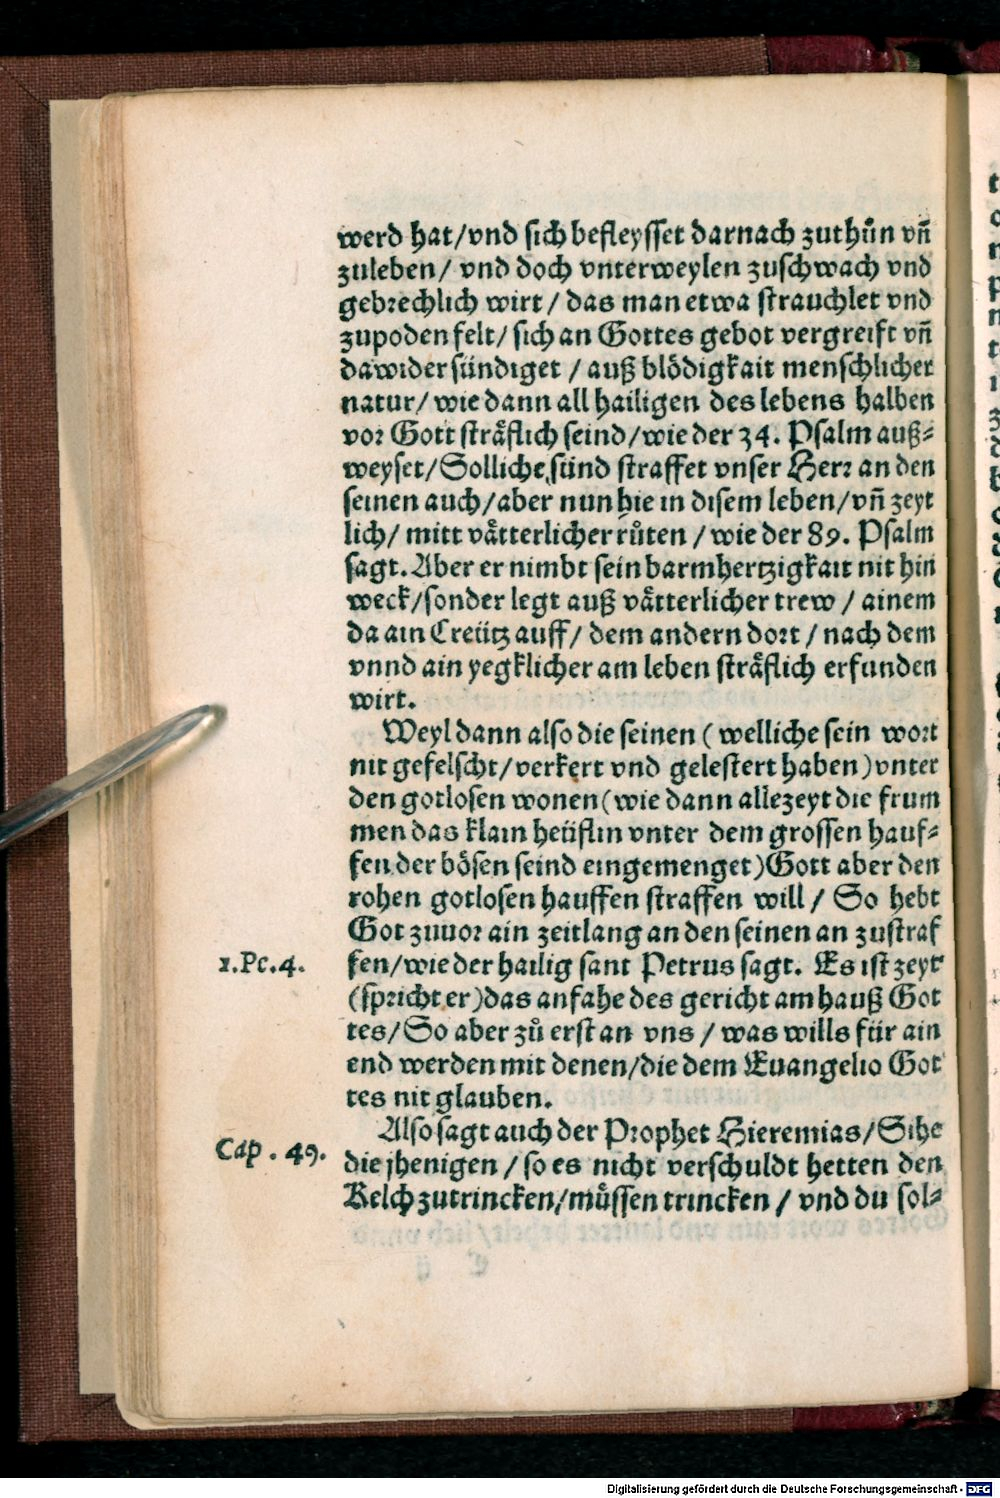 werd hat/vnd sich befleysset darnach zuthůn vñ
zuleben/ vnd doch vnterweylen zuschwach vnd
gebrechlich wirt/ das man etwa strauchlet vnd
zupoden felt/ sich an Gottes gebot vergreift vñ
dawider sündiget / auß blödigkait menschlicher
natur/ wie dann all hailigen des lebens halben
vor Gott sträflich seind/wie der 34. Psalm auß⸗
weyset/Solliche sünd straffet vnser Herr an den
seinen auch/aber nun hie in disem leben/vñ zeyt
lich/ mitt vätterlicher růten / wie der 89. Psalm
sagt. Aber er nimbt sein barmhertzigkait nit hin
weck/sonder legt auß vätterlicher trew / ainem
da ain Creütz auff/ dem andern dort / nach dem
vnnd ain yegklicher am leben sträflich erfunden
wirt.
Weyl dann also die seinen ( welliche sein wort
nit gefelscht/verkert vnd gelestert haben) vnter
den gotlosen wonen (wie dann allezeyt die frum
men das klain heüflin vnter dem grossen hauf⸗
fen der bösen seind eingemenget) Gott aber den
rohen gotlosen hauffen straffen will / So hebt
Got zuuor ain zeitlang an den seinen an zustraf
1.Pe.4. fen/wie der hailig sant Petrus sagt. Es ist zeyt
(spricht er) das anfahe des gericht am hauß Got
tes/ So aber zů erst an vns / was wills für ain
end werden mit denen/die dem Euangelio Got
tes nit glauben.
Also sagt auch der Prophet Hieremias/Sihe
Cap . 49. die jhenigen / so es nicht verschuldt hetten den
Kelch zutrincken/müssen trincken / vnd du sol⸗
Digitalisierung gefördert durch die Deutsche Forschungsgemeinschaft - DFG